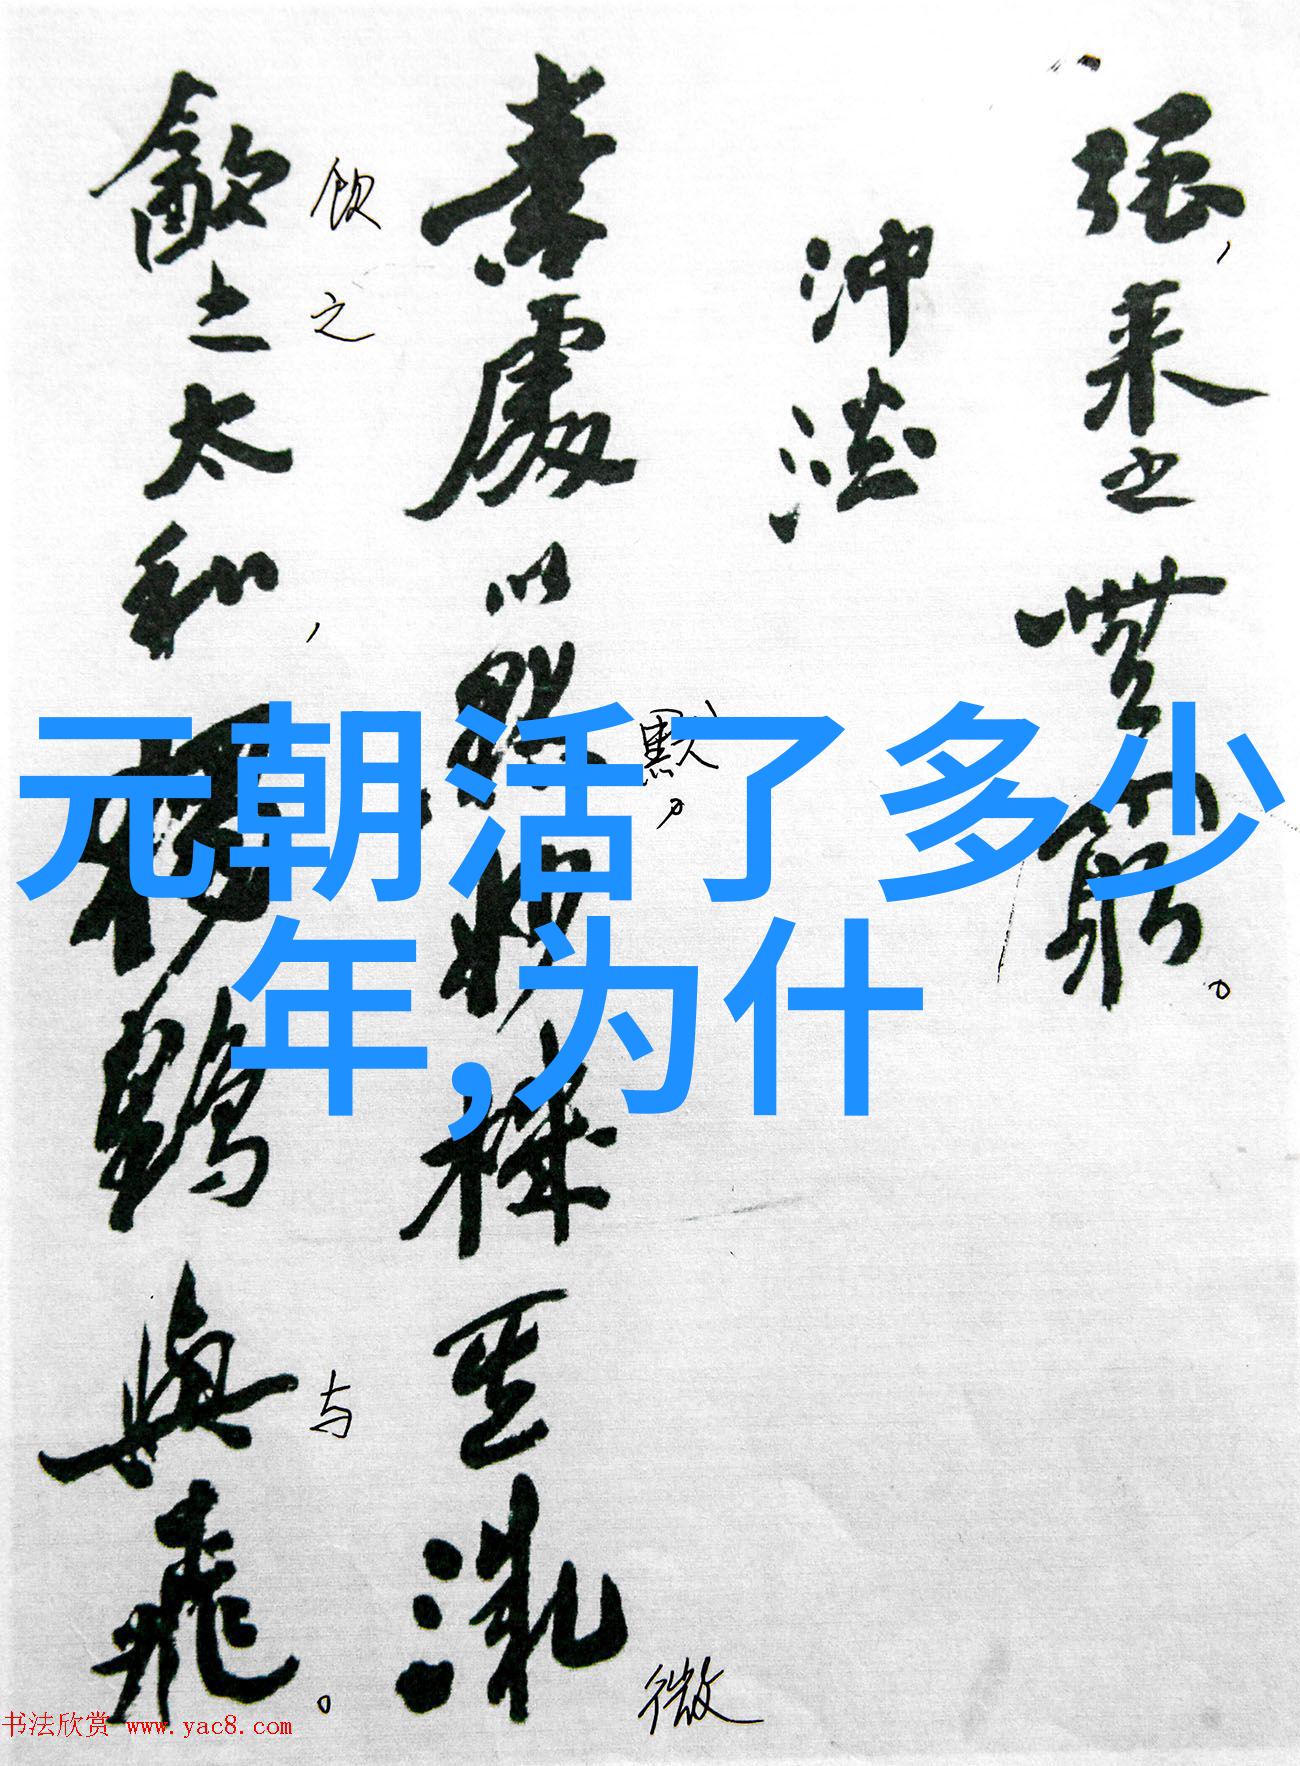 强，来之無窮。
沖淡
素處以默。妙機其微
飲之太和，獨鶴與飛。
饮之
默
与
微
元朝活了多少
年,为什
书法欣赏 www.yac8.com